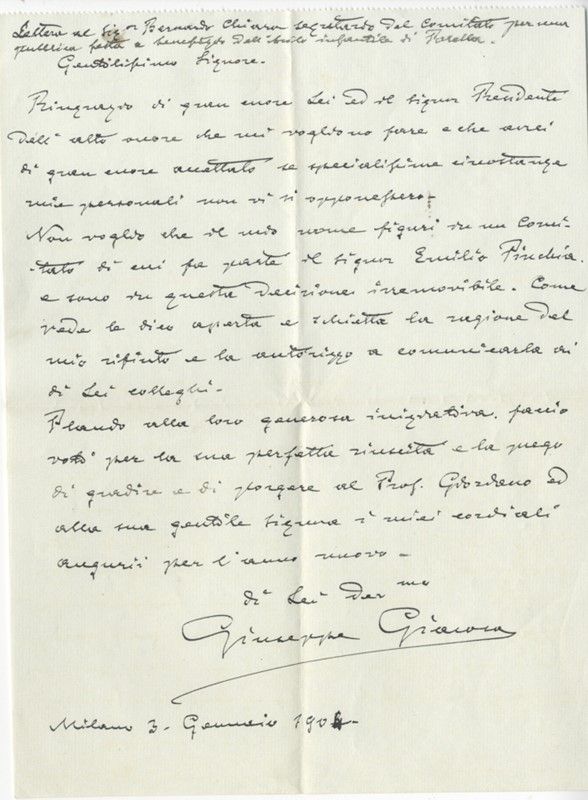 Lettera al Sigor Bernardo Chiara segretario del Comitato per una
pubblica festa a beneficio dell'asilo infantile di Parella.
Gentilissimo Signore.
Ringrazio di gran cuore Lei ed il signor Presidente
dell'alto onore che mi vogliono fare e che avrei
di gran cuore accettato se specialissime circostanze
mie personali non vi si opponessero -
Non voglio che il mio nome figuri in un Comi-
-tato di cui fa parte il signor Emilio Pinchia.
e sono in questa decisione irremovibile. Come
vede le dico aperta e schietta la ragione del
mio rifiuto e la autorizzo a comunicarla ai
di Lei colleghi -
Plaudo alla loro generosa iniziativa. faccio
voti per la sua perfetta riuscita e la prego
di gradire e di porgere al Prof. Giordano ed
alla sua gentile signora i miei cordiali
augurii per l'anno nuovo -
di Lei Devmo
Giuseppe Giacosa
Milano 3. Gennaio 190